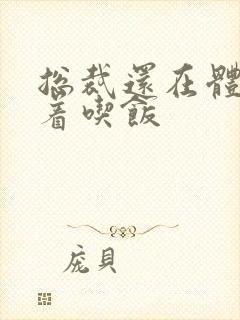 总裁還在體
着喫飯
庞貝